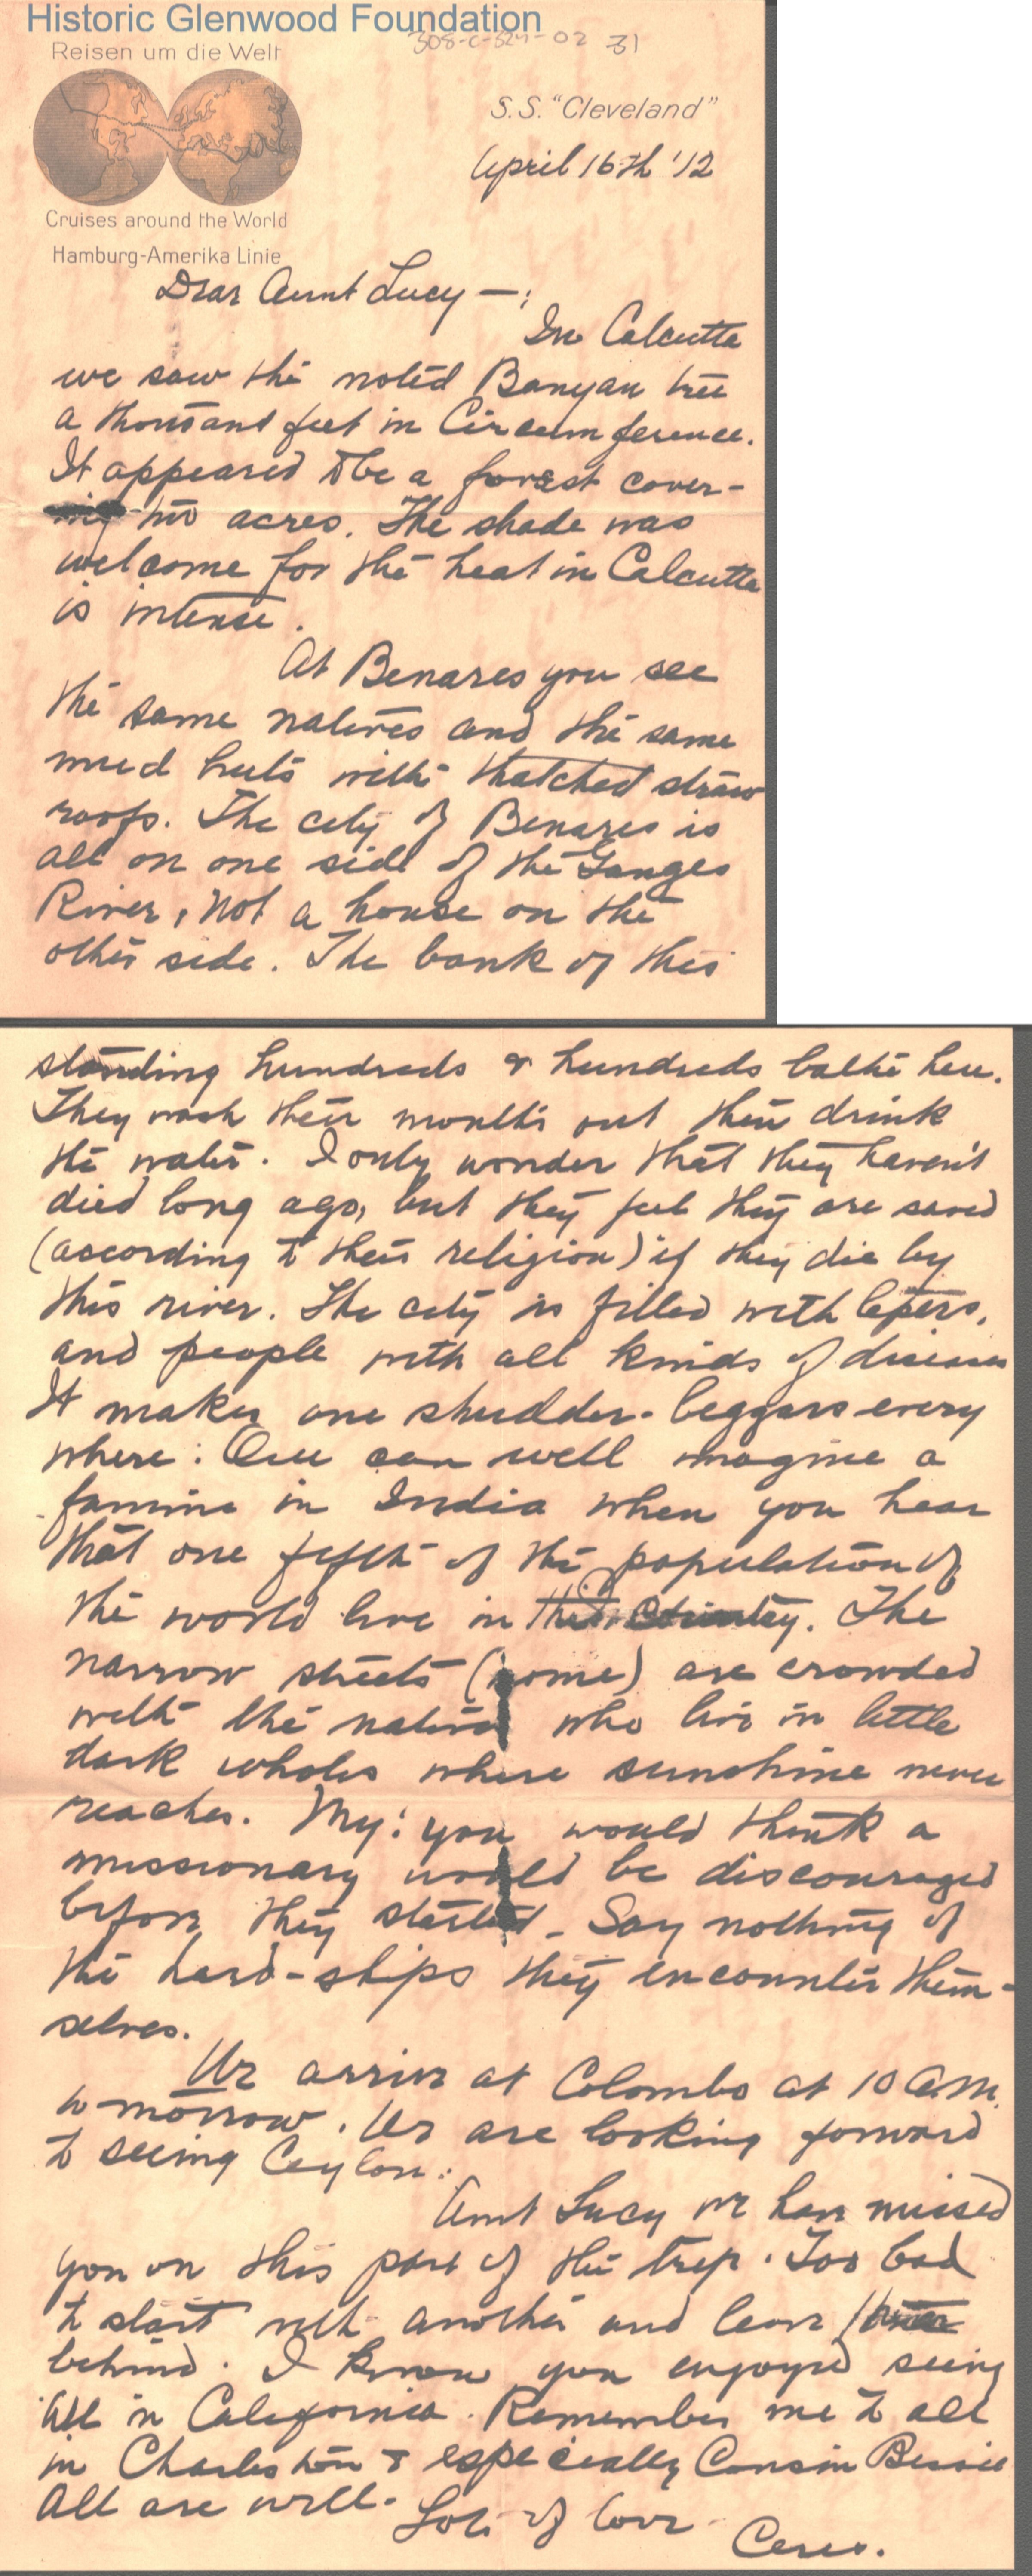 Historic Glenwood Foundation
308-C-824-02 31
Reisen um die Welt
S.S. "Cleveland"
April 16th '12
Cruises around the World
Hamburg-Amerika Linie
Dear Aunt Lucy —:
In Calcutta
we saw the noted Banyan tree
a thousand feet in Circumference.
It appeared to be a forest cover-
ing two acres. The shade was
welcome for the heat in Calcutta
is intense.
At Benares you see
the same natives and the same
mud huts with thatched straw
roofs. The city of Benares is
all on one side of the Ganges
River, not a house on the
other side. The bank of this
standing hundreds & hundreds bathe here.
They wash their mouths out then drink
the water. I only wonder that they haven't
died long ago, but they feel they are saved
(according to their religion) if they die by
this river. The city is filled with lepers,
and people with all kinds of diseases
It makes one shudder - beggars every
where: One can well imagine a
famine in India when you hear
that one fifth of the population of
the world live in this Country. The
narrow streets (some) are crowded
with the natives who live in little
dark wholes where sunshine never
reaches. My! you would think a
missionary would be discouraged
before they started - Say nothing of
the hard-ships they encounter them-
selves.
We arrive at Colombo at 10 a.m.
to-morrow. We are looking forward
to seeing Ceylon.
Aunt Lucy we have missed
you on this part of the trip. Too bad
to start with another and leave
behind. I know you enjoyed seeing
all in California. Remember me to all
in Charleston & especially Cousin Bessie
All are well. Lots of love
Ceres.